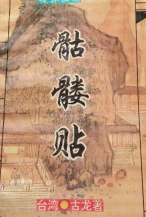 骷髅贴
台湾 古龙著